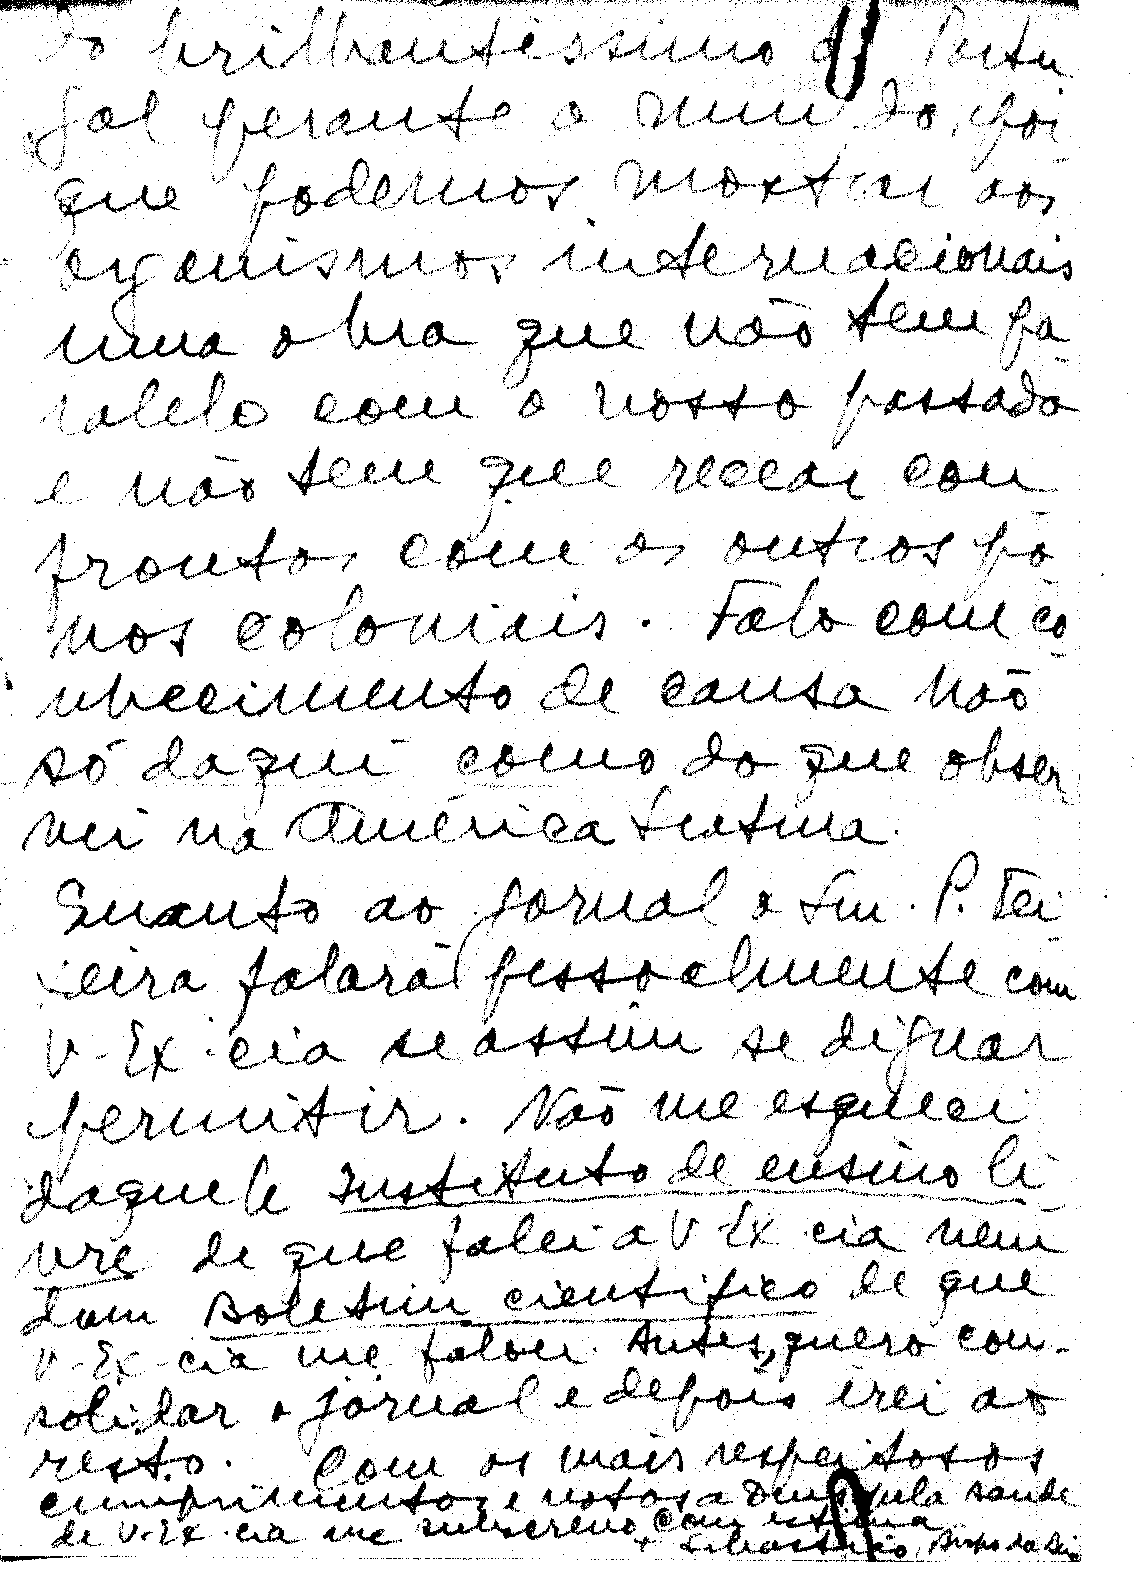 do brilhantissimo de Portu
gal perante o mundo, por
que podemos mostrar aos
organismos internacionais
uma obra que não tem pa-
ralelo com o nosso passado
e não tem que recear con-
frontos com os outros po-
vos coloniais. Falo com co-
nhecimento de causa não
só daqui como do que obser
vei na América Latina.
Quanto ao jornal o Snr. P. Tei-
xeira falará pessoalmente com
V. Ex.cia se assim se dignar
permitir. Não me esqueci
daquele Instituto de ensino li-
vre de que falei a V. Ex.cia nem
dum Boletim cientifico de que
V. Ex.cia me falou. Antes, quero con-
solidar o jornal e depois irei ao
resto. Com os mais respeitosos
cumprimentos e votos a Deus pela saude
de V. Ex.cia me subscrevo com estima
+ Sebastião, Bispo da Beira